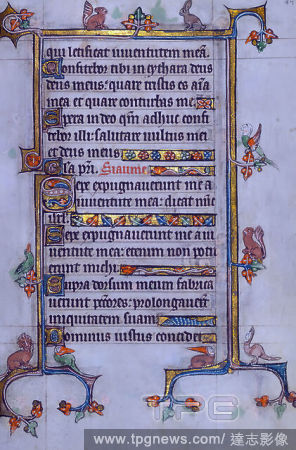 qui letificat iuventutem meā.
Confitebor tibi in cythara deus
deus meus: quare tristis es aīa
mea et quare conturbas me
Spera in deo qm̄ adhuc confi
tebor illi: salutare vultus mei
et deus meus
Sepe expugnaverunt me a
iuventute mea: dicat nūc
isrl.
Sepe expugnaverunt me a iu
ventute mea: etenim non potu
erunt michi
Supra dorsum meum fabrica
verunt pctōres: prolongaverūt
iniquitatem suam
Dominus iustus concidet
TPG
www.tpgnews.com/ 達志影像